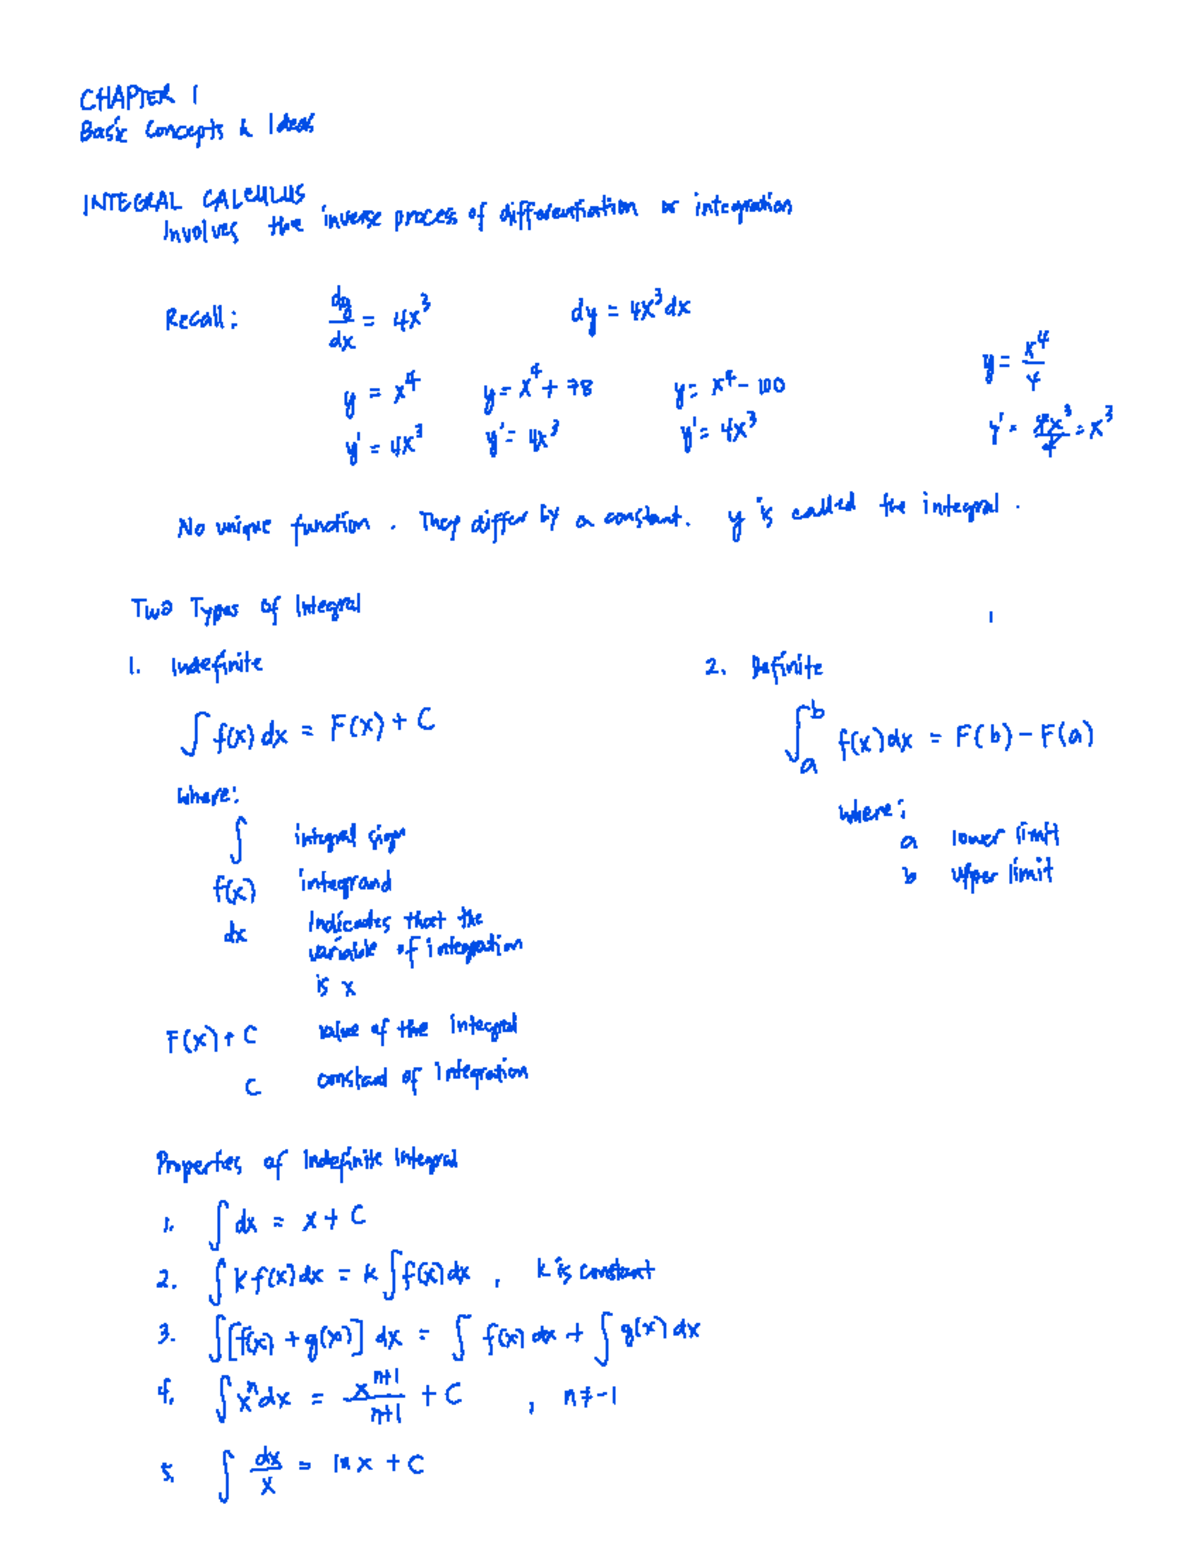 CHAPTER 1
Basic Concepts & Ideas
INTEGRAL CALCULUS
Involves the inverse process of differentiation or integration
Recall: dy/dx = 4x³ dy = 4x³dx
y = x⁴ y = x⁴ + 78 y = x⁴ - 100 y = x⁴/4
y' = 4x³ y' = 4x³ y' = 4x³ y' = 4x³/4 = x³
No unique function. They differ by a constant. y is called the integral.
Two Types of Integral
1. Indefinite 2. Definite
∫ f(x) dx = F(x) + C ∫ₐᵇ f(x) dx = F(b) - F(a)
where: where:
∫ integral sign a lower limit
f(x) integrand b upper limit
dx Indicates that the
variable of integration
is x
F(x) + C value of the integral
C constant of integration
Properties of Indefinite Integral
1. ∫ dx = x + C
2. ∫ k f(x) dx = k ∫ f(x) dx , k is constant
3. ∫ [f(x) + g(x)] dx = ∫ f(x) dx + ∫ g(x) dx
4. ∫ xⁿ dx = xⁿ⁺¹/n+1 + C , n ≠ -1
5. ∫ dx/x = ln x + C